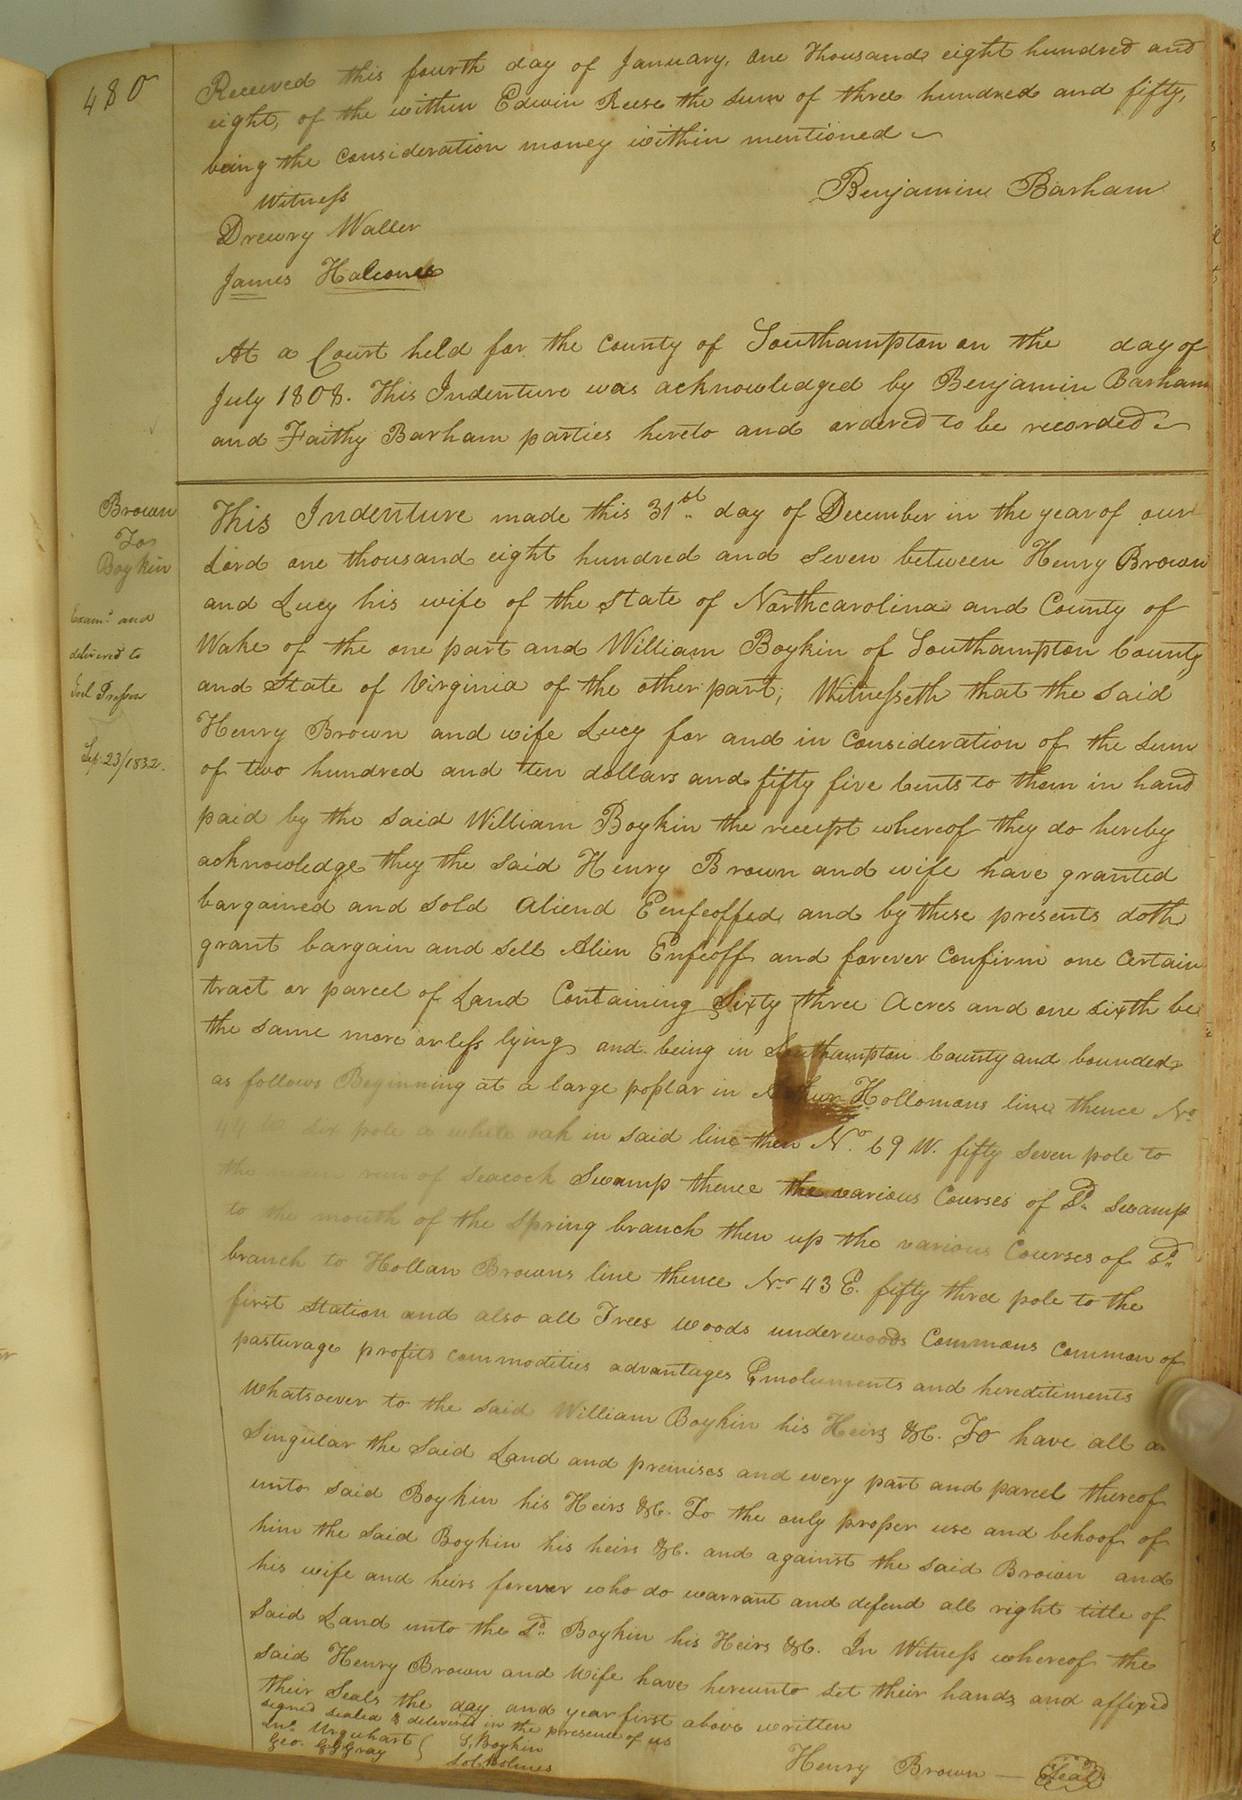 480
Received this fourth day of January, one thousand eight hundred and
eight, of the within Edwin Reese the sum of three hundred and fifty,
being the consideration money within mentioned
Benjamin Barham
Witness
Drewry Waller
James
At a Court held for the County of Southampton on the day of
July 1808. This Indenture was acknowledged by Benjamin Barham
and Faithy Barham parties hereto and ordered to be recorded
Brown
To
Boykin
Exam.d and
delivered to
Sep. 23/1832.
This Indenture made this 31st day of December in the year of our
Lord one thousand eight hundred and seven between Henry Brown
and Lucy his wife of the State of Northcarolina and County of
Wake of the one part and William Boykin of Southampton County
and State of Virginia of the other part, Witnesseth that the said
Henry Brown and wife Lucy for and in Consideration of the sum
of two hundred and ten dollars and fifty five Cents to them in hand
paid by the said William Boykin the receipt whereof they do hereby
acknowledge they the said Henry Brown and wife have granted
bargained and sold Aliend Eenfeoffed and by these presents doth
grant bargain and sell Alien Enfeoff and forever Confirm one Certain
tract or parcel of Land Containing Sixty three Acres and one sixth be
the same more or less lying and being in Southampton County and bounded
as follows Beginning at a large poplar in Hollomans line thence No
44 W six pole a white oak in said line then No. 69 W. fifty seven pole to
the run of Seacock Swamp thence the various Courses of sd. Swamp
to the mouth of the Spring branch then up the various Courses of sd.
branch to Hollan Browns line thence No. 43 E. fifty three pole to the
first station and also all Trees woods underwoods Commons Common of
pasturage profits commodities advantages Emoluments and hereditiments
Whatsoever to the said William Boykin his Heirs &C. To have all a
Singular the Said Land and premises and every part and parcel thereof
unto said Boykin his Heirs &C. To the only proper use and behoof of
him the said Boykin his heirs &C. and against the said Brown and
his wife and heirs forever who do warrant and defend all right title of
Said Land unto the Sd. Boykin his Heirs &C. In Witness whereof the
said Henry Brown and Wife have hereunto set their hands and affixed
their Seals the day and year first above written
signed sealed & delivered in the presence of us
Jno. Urquhart S. Boykin
Geo. Gray Sol. Holmes
Henry Brown — Seal